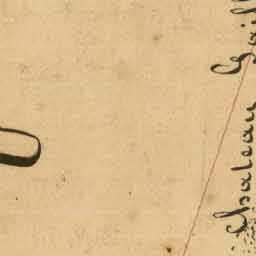 Chateau Gaill